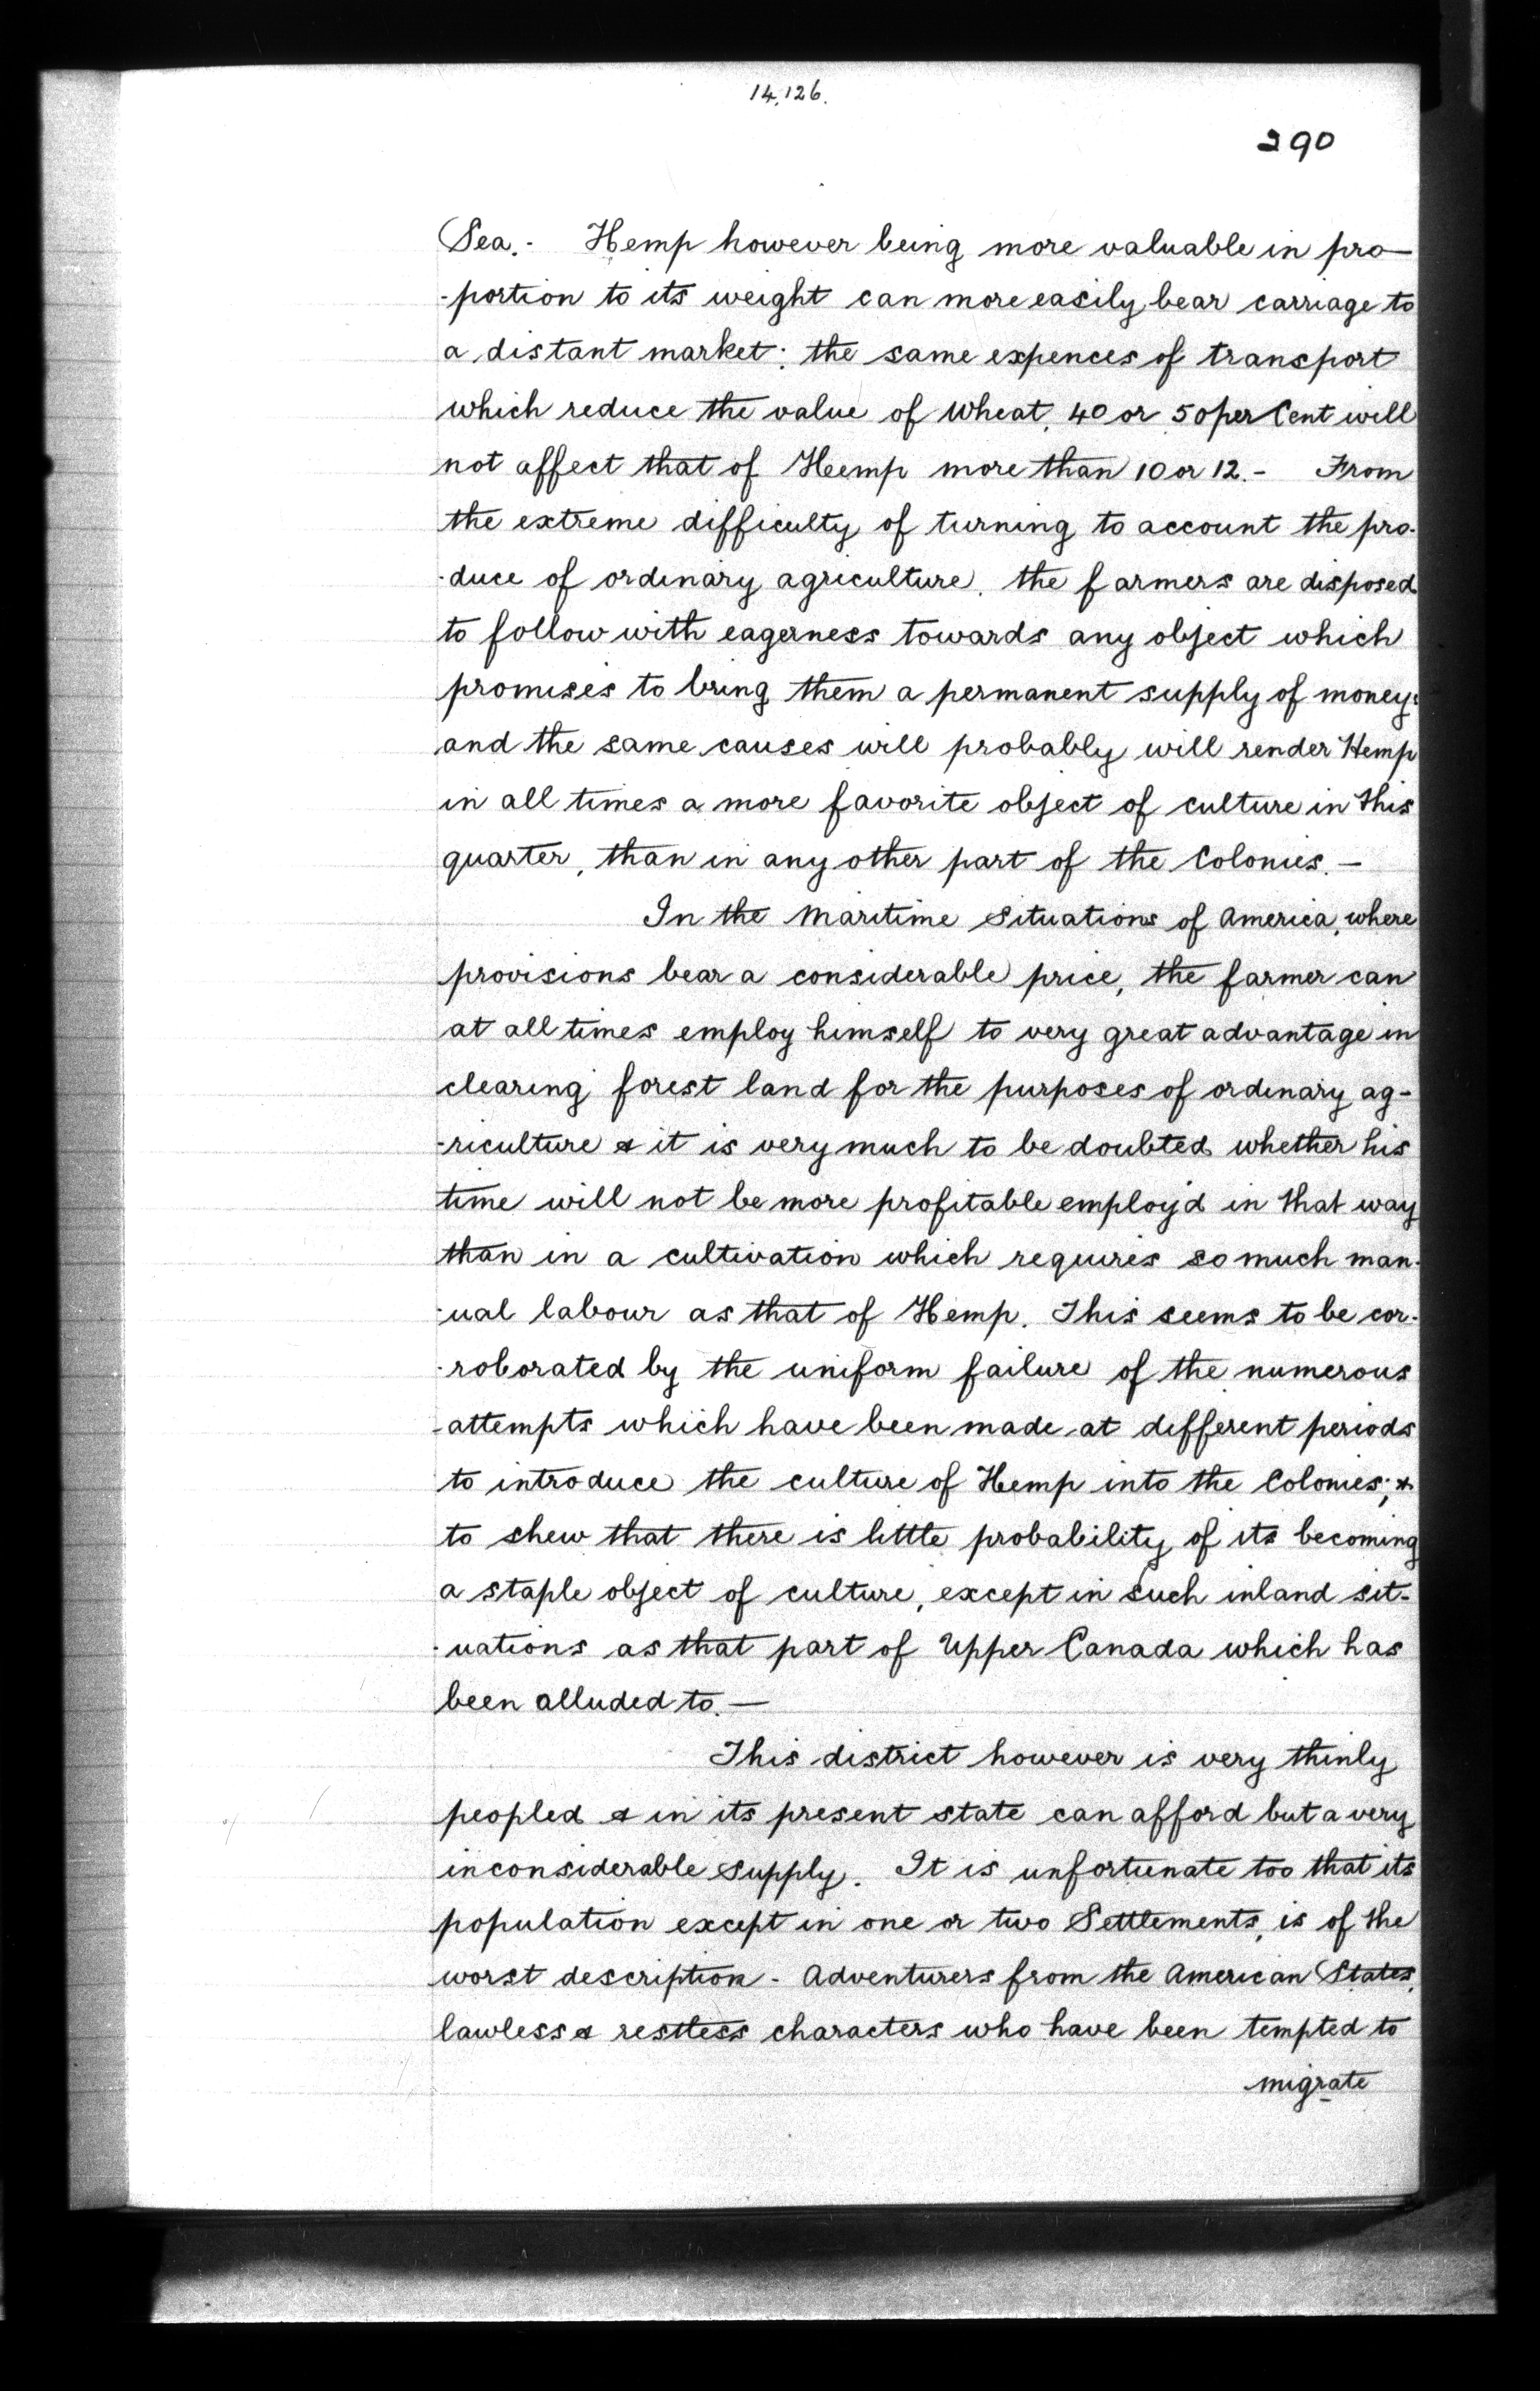 14,126.
290
Sea. - Hemp however being more valuable in pro-
-portion to its weight can more easily bear carriage to
a distant market: the same expences of transport
which reduce the value of Wheat, 40 or 50 per Cent will
not affect that of Hemp more than 10 or 12. - From
the extreme difficulty of turning to account the pro-
-duce of ordinary agriculture, the farmers are disposed
to follow with eagerness towards any object which
promises to bring them a permanent supply of money:
and the same causes will probably will render Hemp
in all times a more favorite object of culture in this
quarter, than in any other part of the Colonies. -
In the Maritime Situations of America, where
provisions bear a considerable price, the farmer can
at all times employ himself to very great advantage in
clearing forest land for the purposes of ordinary ag-
-riculture & it is very much to be doubted whether his
time will not be more profitable employ'd in that way
than in a cultivation which requires so much man-
-ual labour as that of Hemp. This seems to be cor-
-roborated by the uniform failure of the numerous
attempts which have been made at different periods
to introduce the culture of Hemp into the Colonies; &
to shew that there is little probability of its becoming
a staple object of culture, except in Such inland sit-
-uations as that part of Upper Canada which has
been alluded to. -
This district however is very thinly
peopled & in its present state can afford but a very
inconsiderable supply. It is unfortunate too that its
population except in one or two Settlements, is of the
worst description - Adventurers from the American States,
lawless & restless characters who have been tempted to
migrate